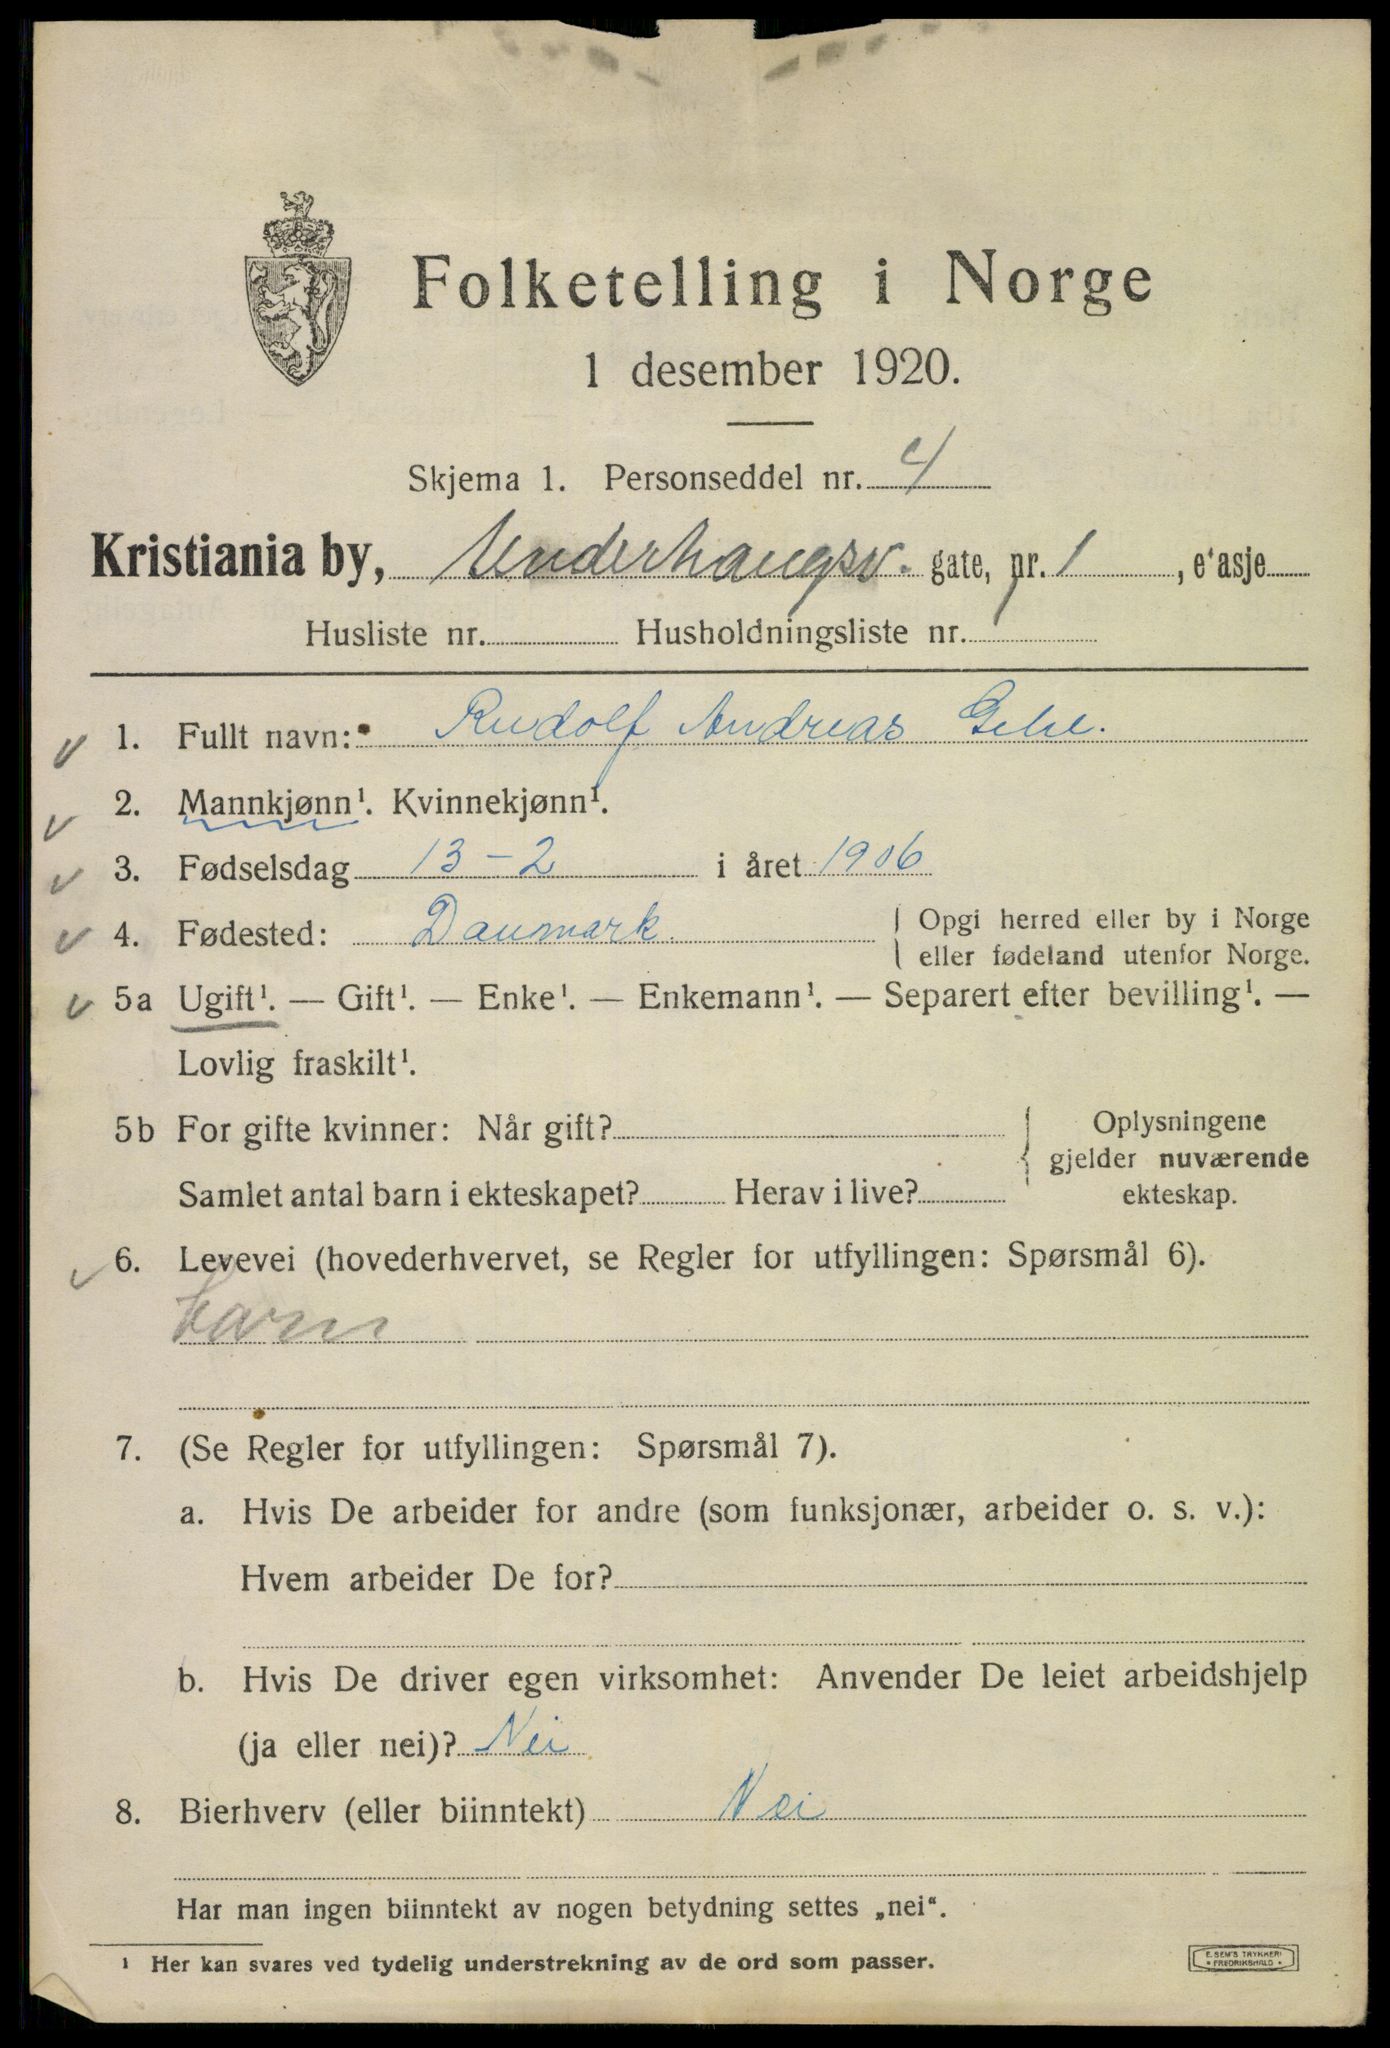 Folketelling i Norge
1 desember 1920.
Skjema 1. Personseddel nr. 4
Kristiania by, Underhaugsv. gate, nr. 1, e'asje
Husliste nr. Husholdningsliste nr. 1
1. Fullt navn: Rudolf Andreas
2. Mannkjønn¹. Kvinnekjønn¹.
3. Fødselsdag 13-2 i året 1906
4. Fødested: Danmark. Opgi herred eller by i Norge
eller fødeland utenfor Norge.
5a Ugift¹. — Gift¹. — Enke¹. — Enkemann¹. — Separert efter bevilling¹. —
Lovlig fraskilt¹.
5b For gifte kvinner: Når gift?
Samlet antal barn i ekteskapet? Herav i live?
Oplysningene
gjelder nuværende
ekteskap.
6. Levevei (hovederhvervet, se Regler for utfyllingen: Spørsmål 6).
barn
7. (Se Regler for utfyllingen: Spørsmål 7).
a. Hvis De arbeider for andre (som funksjonær, arbeider o. s. v.):
Hvem arbeider De for?
b. Hvis De driver egen virksomhet: Anvender De leiet arbeidshjelp
(ja eller nei)? Nei
8. Bierhverv (eller biinntekt) Nei
Har man ingen biinntekt av nogen betydning settes „nei“.
¹ Her kan svares ved tydelig understrekning av de ord som passer.
E. SEM'S TRYKKERI
• FREDRIKSHALD •